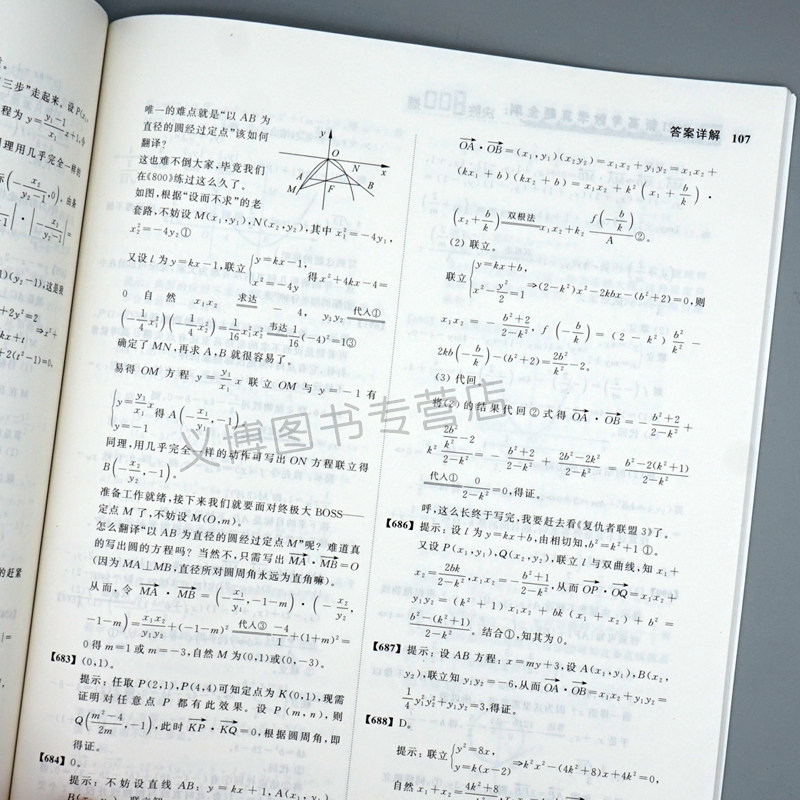 答案详解 107
三步”走起来，设P(
程为y=\frac{y_1-1}{x_1}x+1,令
同理用几乎完全一样的
唯一的难点就是“以AB为
直径的圆经过定点”该如何
翻译？
这也难不倒大家，毕竟我们
在《800》练过这么久了。
如图，根据“设而不求”的老
套路，不妨设M(x_1,y_1),N(x_2,y_2),其中x_1^2=-4y_1,
x_2^2=-4y_2①
又设l为y=kx-1,联立{y=kx-1, x^2=-4y 得x^2+4kx-4=
0 自然 x_1x_2 求达 -4, y_1y_2 代入①
(-\frac{1}{4}x_1^2)(-\frac{1}{4}x_2^2)=\frac{1}{16}x_1^2x_2^2 韦达 \frac{1}{16}(-4)^2=1③
确定了MN,再求A,B就很容易了。
易得OM方程y=\frac{y_1}{x_1}x联立OM与y=-1有
{y=\frac{y_1}{x_1}x, y=-1 得A(-\frac{x_1}{y_1},-1),
同理,用几乎完全一样的动作可写出ON方程联立得
B(-\frac{x_2}{y_2},-1)。
准备工作就绪,接下来我们就要面对终极大BOSS——
定点M了,不妨设M(O,m)。
怎么翻译“以AB为直径的圆经过定点M”呢？难道真
的写出圆的方程吗？当然不,只需写出\vec{MA}·\vec{MB}=O
(因为MA⊥MB,直径所对圆周角永远为直角嘛)。
从而,令\vec{MA}·\vec{MB}=(-\frac{x_1}{y_1},-1-m)·(-\frac{x_2}{y_2},
-1-m)=\frac{x_1x_2}{y_1y_2}+(-1-m)^2 代入③ \frac{-4}{1}+(1+m)^2=
0得m=1或m=-3,自然M为(0,1)或(0,-3)。
【683】(0,1)。
提示:任取P(2,1),P(4,4)可知定点为K(0,1),现需
证明对任意点P都有此效果。设P(m,n),则
Q(\frac{m^2-4}{2m},-1),此时\vec{KP}·\vec{KQ}=0,根据圆周角,即
得证。
【684】0。
提示:不妨设直线AB:y=kx+1,
\vec{OA}·\vec{OB}=(x_1,y_1)(x_2y_2)=x_1x_2+y_1y_2=x_1x_2+
(kx_1+b)(kx_2+b)=x_1x_2+k^2(x_1+\frac{b}{k})·
(x_2+\frac{b}{k}) 双根法 x_1x_2+k_2\frac{f(-\frac{b}{k})}{A}②。
(2)联立。
联立{y=kx+b, x^2-\frac{y^2}{2}=1 ⇒(2-k^2)x^2-2kbx-(b^2+2)=0,则
x_1x_2=-\frac{b^2+2}{2-k^2},f(-\frac{b}{k})=(2-k^2)\frac{b^2}{k^2}-
2kb(-\frac{b}{k})-(b^2+2)=\frac{2b^2}{k^2}-2。
(3)代回。
将(2)的结果代回②式得\vec{OA}·\vec{OB}=-\frac{b^2+2}{2-k^2}+
k^2\frac{\frac{2b^2}{k^2}-2}{2-k^2}=-\frac{b^2+2}{2-k^2}+\frac{2b^2-2k^2}{2-k^2}=\frac{b^2-2(k^2+1)}{2-k^2}
代入① \frac{0}{2-k^2}=0,得证。
呼,这么长终于写完,我要赶去看《复仇者联盟3》了。
【686】提示:设l为y=kx+b,由相切知,b^2=k^2+1①。
又设P(x_1,y_1),Q(x_2,y_2),联立l与双曲线,知x_1+
x_2=\frac{2bk}{2-k^2},x_1x_2=-\frac{b^2+1}{2-k^2},从而\vec{OP}·\vec{OQ}=x_1x_2+
y_1y_2=(k^2+1)x_1x_2+bk(x_1+x_2)+b^2=
\frac{b^2-(k^2+1)}{2-k^2}。结合①,知其为0。
【687】提示:设AB方程:x=my+3,设A(x_1,y_1),B(x_2,
y_2),联立知y_1y_2=-6,从而\vec{OA}·\vec{OB}=x_1x_2+y_1y_2=
\frac{1}{4}y_1^2y_2^2+y_1y_2=3,得证。
【688】D。
提示:联立{y^2=8x, y=k(x-2) ⇒k^2x^2-(4k^2+8)x+4k^2=0,
自然x_1+x_2=\frac{4k^2+8}
义博图书专营店